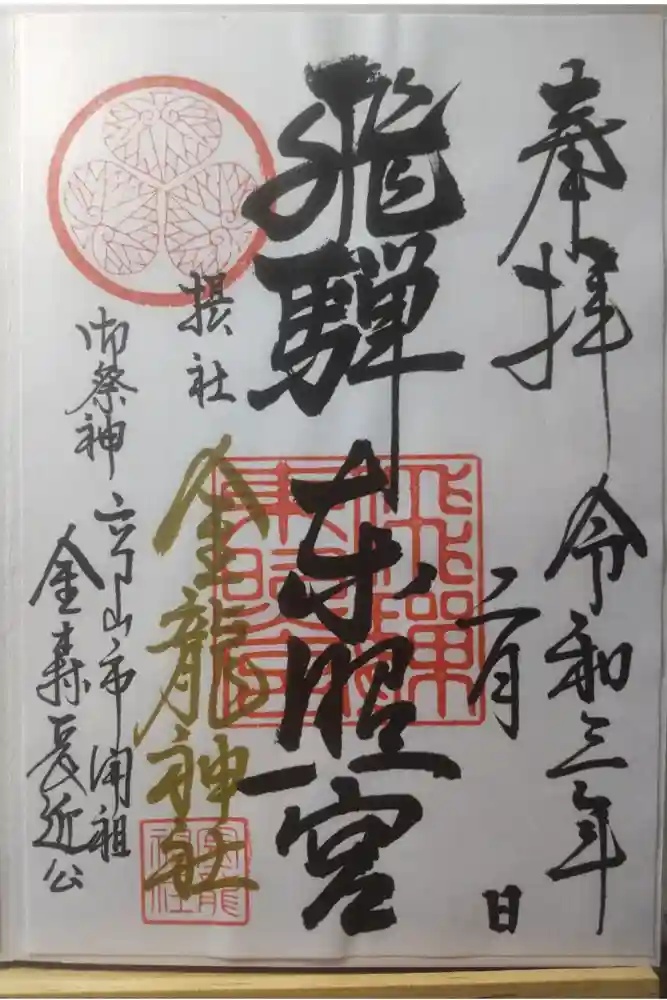 奉拝
令和三年
二月
日
飛騨東照宮
摂社
金龍神社
御祭神
高山市開祖
金森長近公
飛騨東照宮
金龍神社